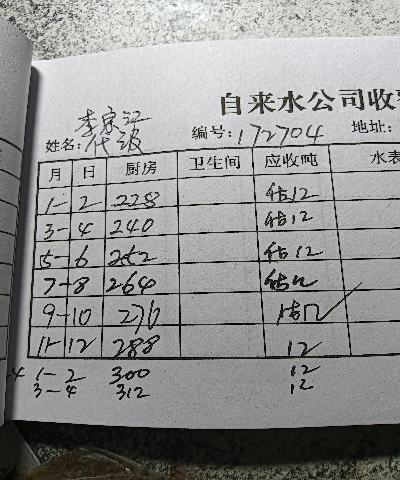 自来水公司收
李宗江
姓名：代收 编号：172704 地址：
月 日 厨房 卫生间 应收吨 水表
1-2 228 估12
3-4 240 估12
5-6 252 估12
7-8 264 估12
9-10 276 估12
11-12 288 12
1-2 300 12
3-4 312 12